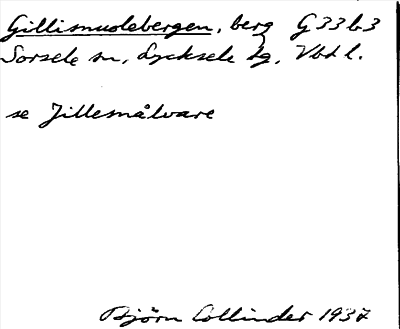 Gillismuolebergen, berg G33b3
Sorsele sn, Lycksele tg, Vbtl.
se Jillesmålvare
Björn Collinder 1937